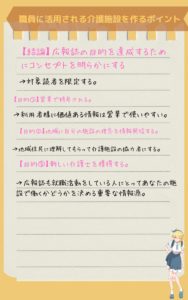 職員に活用される介護施設を作るポイント
【結論】広報誌の目的を達成するため
にコンセプトを明らかにする
→対象読者を限定する。
【目的①】営業で期待される。
→利用者様に価値ある情報は営業で使いやすい。
【目的②】地域に自分の施設の理念を情報発信する。
→地域住民に理解してもらって介護施設の協力者にする。
【目的③】新しい介護士を獲得する。
→広報誌も就職活動をしている人にとってあなたの施
設で働くかどうかを決める重要な情報源。